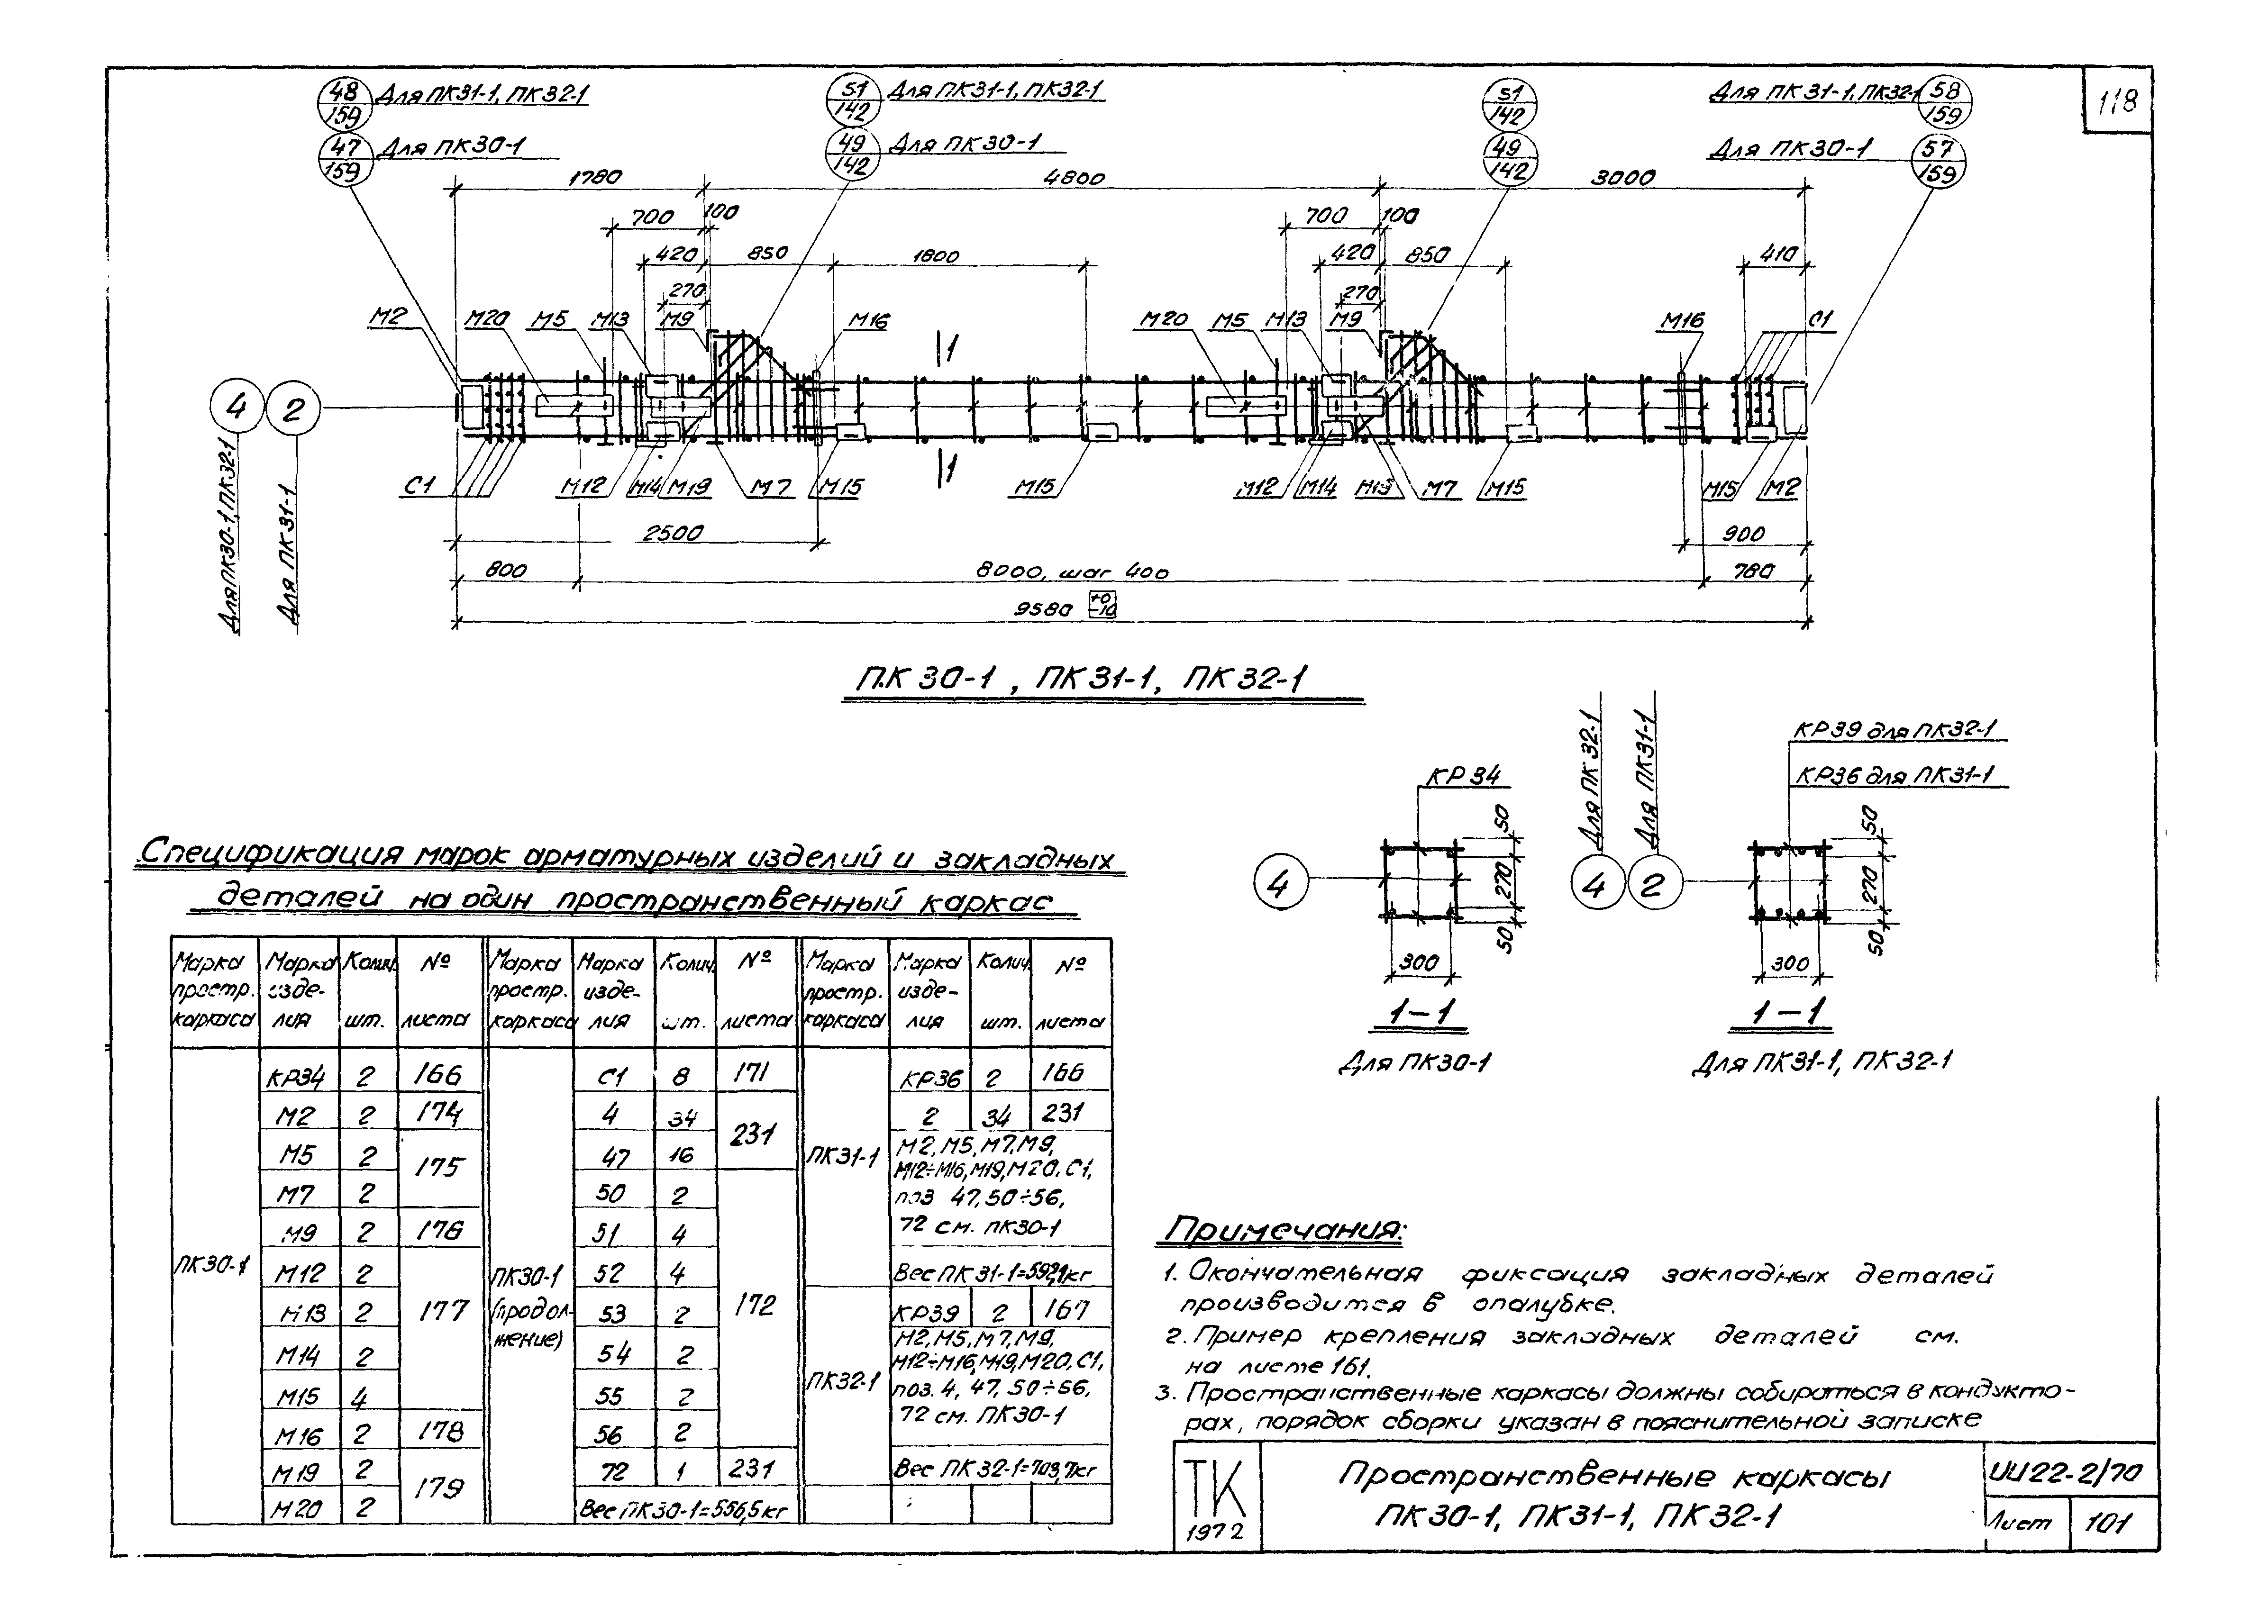 118
48/159 Для ПК31-1, ПК32-1
47/159 Для ПК30-1
51/142 Для ПК31-1, ПК32-1
49/142 Для ПК30-1
51/142
49/142
Для ПК31-1, ПК32-1 58/159
Для ПК30-1 57/159
1780 4800 3000
700 100 700 100
420 850 1800 420 850 410
270 270
М2 М20 М5 М13 М9 М16 М20 М5 М13 М9 М16 С1
1 1
4 2
Для ПК30-1, ПК32-1
Для ПК31-1
С1 М12 М14 М19 М7 М15 М15 М12 М14 М19 М7 М15 М15 М2
2500 900
800 8000, шаг 400 780
9580 +0 -10
ПК 30-1, ПК31-1, ПК32-1
КР34
50
270
50
300
4
1-1
Для ПК30-1
Для ПК32-1
Для ПК31-1
4 2
КР39 для ПК32-1
КР36 для ПК31-1
50
270
50
300
1-1
Для ПК31-1, ПК32-1
Спецификация марок арматурных изделий и закладных
деталей на один пространственный каркас
Марка простр. каркаса | Марка изделия | Колич. шт. | № листа
ПК30-1
КР34 2 166
М2 2 174
М5 2 175
М7 2
М9 2 176
М12 2 177
М13 2
М14 2
М15 4
М16 2 178
М19 2 179
М20 2
Марка простр. каркаса | Марка изде-лия | Колич. шт. | № листа
ПК30-1 (продол-жение)
С1 8 171
4 34 231
47 16
50 2 172
51 4
52 4
53 2
54 2
55 2
56 2
72 1 231
Вес ПК30-1=556,5кг
Марка простр. каркаса | Марка изде-лия | Колич. шт. | № листа
ПК31-1
КР36 2 166
2 34 231
М2, М5, М7, М9,
М12÷М16, М19, М20, С1,
поз 47, 50÷56,
72 см. ПК30-1
Вес ПК31-1=592,1кг
ПК32-1
КР39 2 167
М2, М5, М7, М9,
М12÷М16, М19, М20, С1,
поз. 4, 47, 50÷56,
72 см. ПК30-1
Вес ПК 32-1=703,7кг
Примечания:
1. Окончательная фиксация закладных деталей
производится в опалубке.
2. Пример крепления закладных деталей см.
на листе 161.
3. Пространственные каркасы должны собираться в кондукто-
рах, порядок сборки указан в пояснительной записке
ТК
1972
Пространственные каркасы
ПК30-1, ПК31-1, ПК32-1
ИИ22-2/70
Лист 101